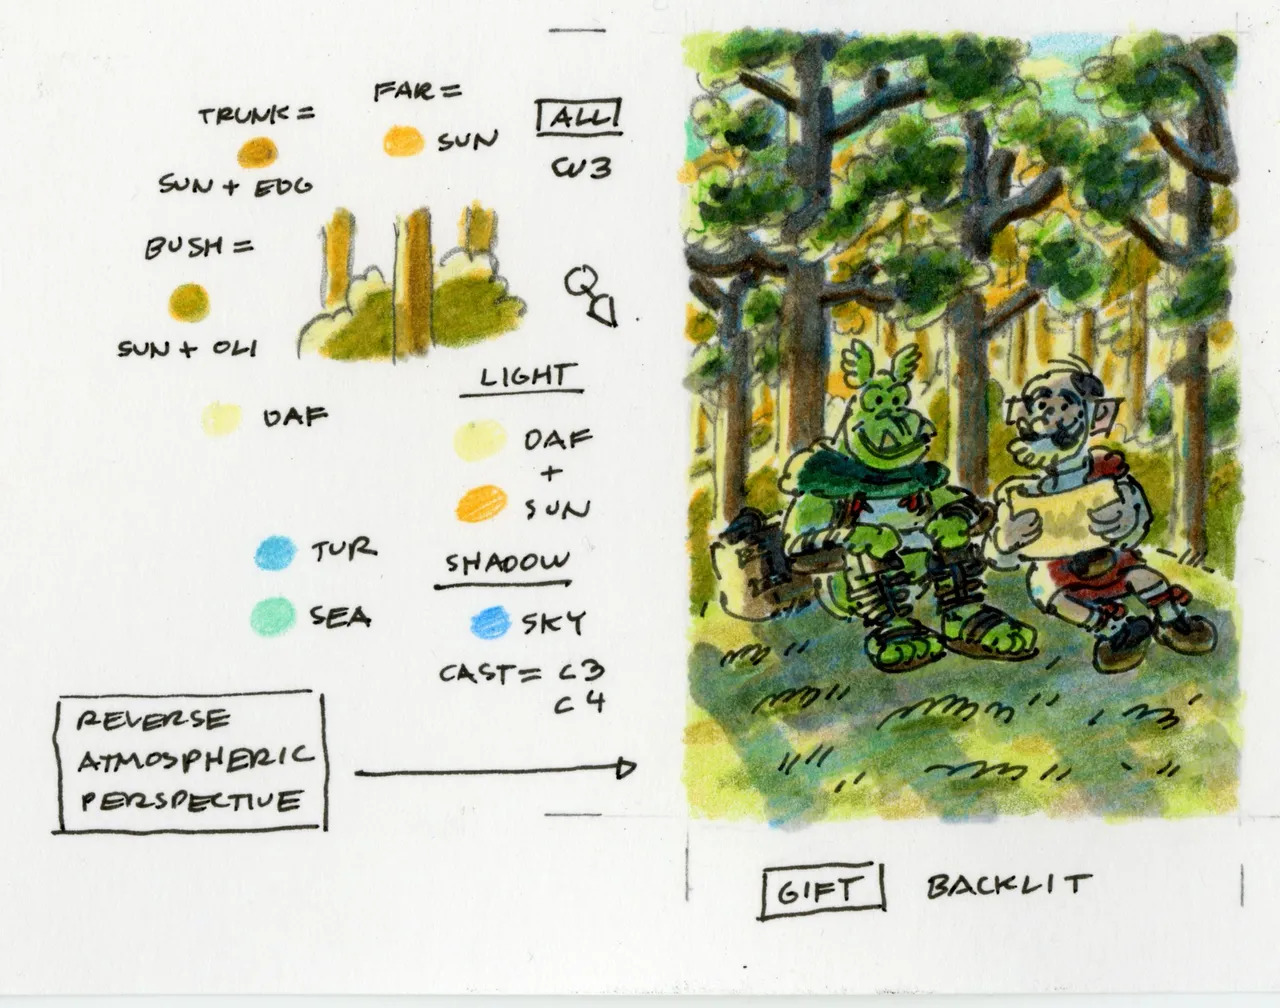 TRUNK =
SUN + EDG
FAR =
SUN
ALL
CW3
BUSH =
SUN + OLI
DAF
LIGHT
DAF
+
SUN
TUR
SEA
SHADOW
SKY
CAST = C3
C4
REVERSE
ATMOSPHERIC
PERSPECTIVE
GIFT BACKLIT